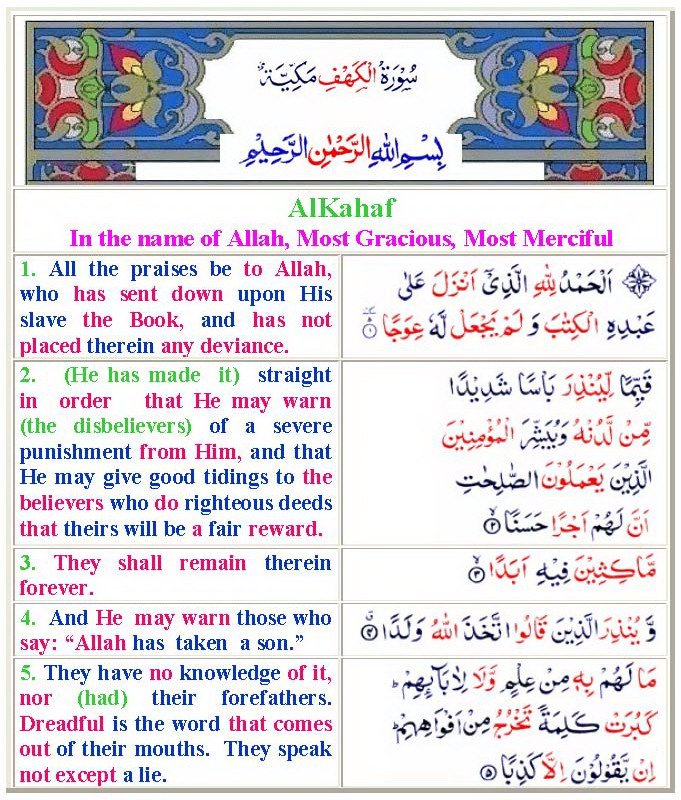 سُوْرَةُ الْكَهْفِ مَكِّيَّةٌ
بِسْمِ اللهِ الرَّحْمٰنِ الرَّحِيْمِ
AlKahaf
In the name of Allah, Most Gracious, Most Merciful
1. All the praises be to Allah,
who has sent down upon His
slave the Book, and has not
placed therein any deviance.
اَلْحَمْدُ لِلّٰهِ الَّذِيْۤ اَنْزَلَ عَلٰى
عَبْدِهِ الْكِتٰبَ وَ لَمْ يَجْعَلْ لَّهٗ عِوَجًا ۱
2. (He has made it) straight
in order that He may warn
(the disbelievers) of a severe
punishment from Him, and that
He may give good tidings to the
believers who do righteous deeds
that theirs will be a fair reward.
قَيِّمًا لِّيُنْذِرَ بَاْسًا شَدِيْدًا
مِّنْ لَّدُنْهُ وَيُبَشِّرَ الْمُؤْمِنِيْنَ
الَّذِيْنَ يَعْمَلُوْنَ الصّٰلِحٰتِ
اَنَّ لَهُمْ اَجْرًا حَسَنًا ۲
3. They shall remain therein
forever.
مَّاكِثِيْنَ فِيْهِ اَبَدًا ۳
4. And He may warn those who
say: “Allah has taken a son.”
وَّ يُنْذِرَ الَّذِيْنَ قَالُوا اتَّخَذَ اللهُ وَلَدًا
5. They have no knowledge of it,
nor (had) their forefathers.
Dreadful is the word that comes
out of their mouths. They speak
not except a lie.
مَا لَهُمْ بِهٖ مِنْ عِلْمٍ وَّلَا لِاٰبَآئِهِمْ ؕ
كَبُرَتْ كَلِمَةً تَخْرُجُ مِنْ اَفْوَاهِهِمْ ؕ
اِنْ يَّقُوْلُوْنَ اِلَّا كَذِبًا ۵